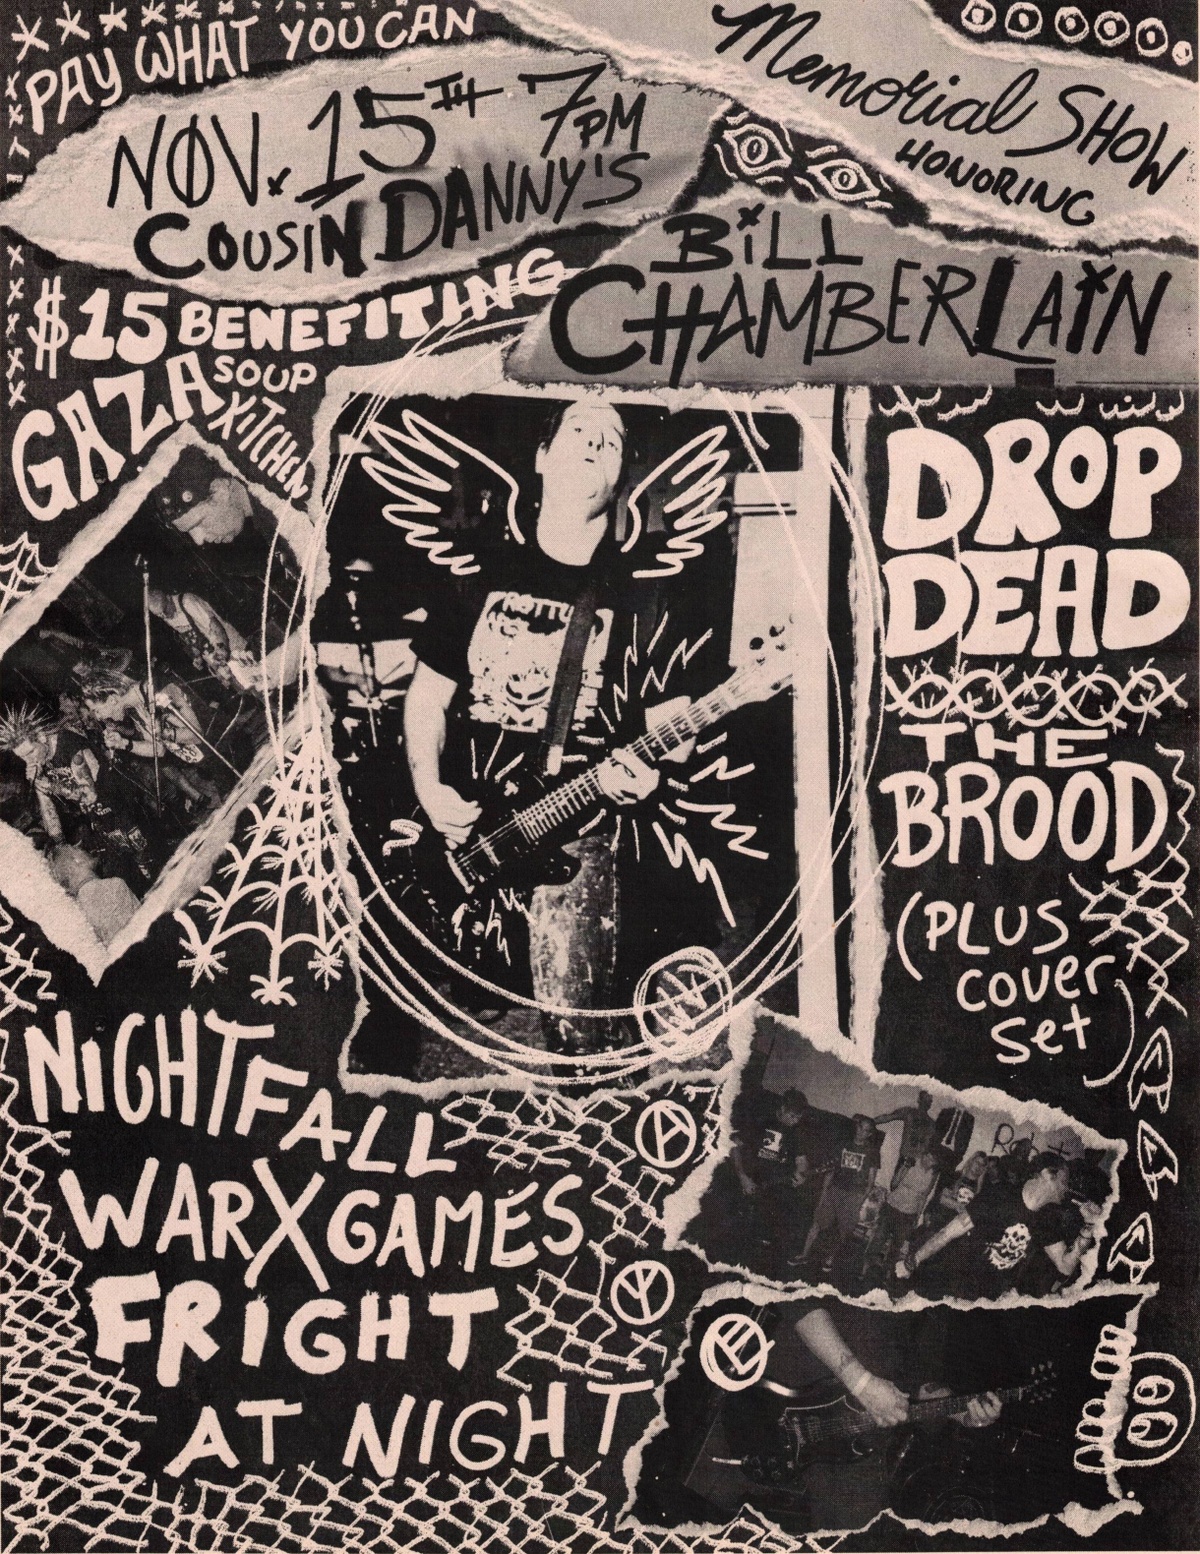 PAY WHAT YOU CAN
NOV. 15TH 7PM
COUSIN DANNY'S
Memorial SHOW
HONORING
BiLL
CHAMBERLAiN
$15 BENEFITING
GAZA SOUP
KITCHEN
DROP
DEAD
THE
BROOD
(PLUS
cover
set)
NiGHTFALL
WARXGAMES
FRiGHT
AT NIGHT